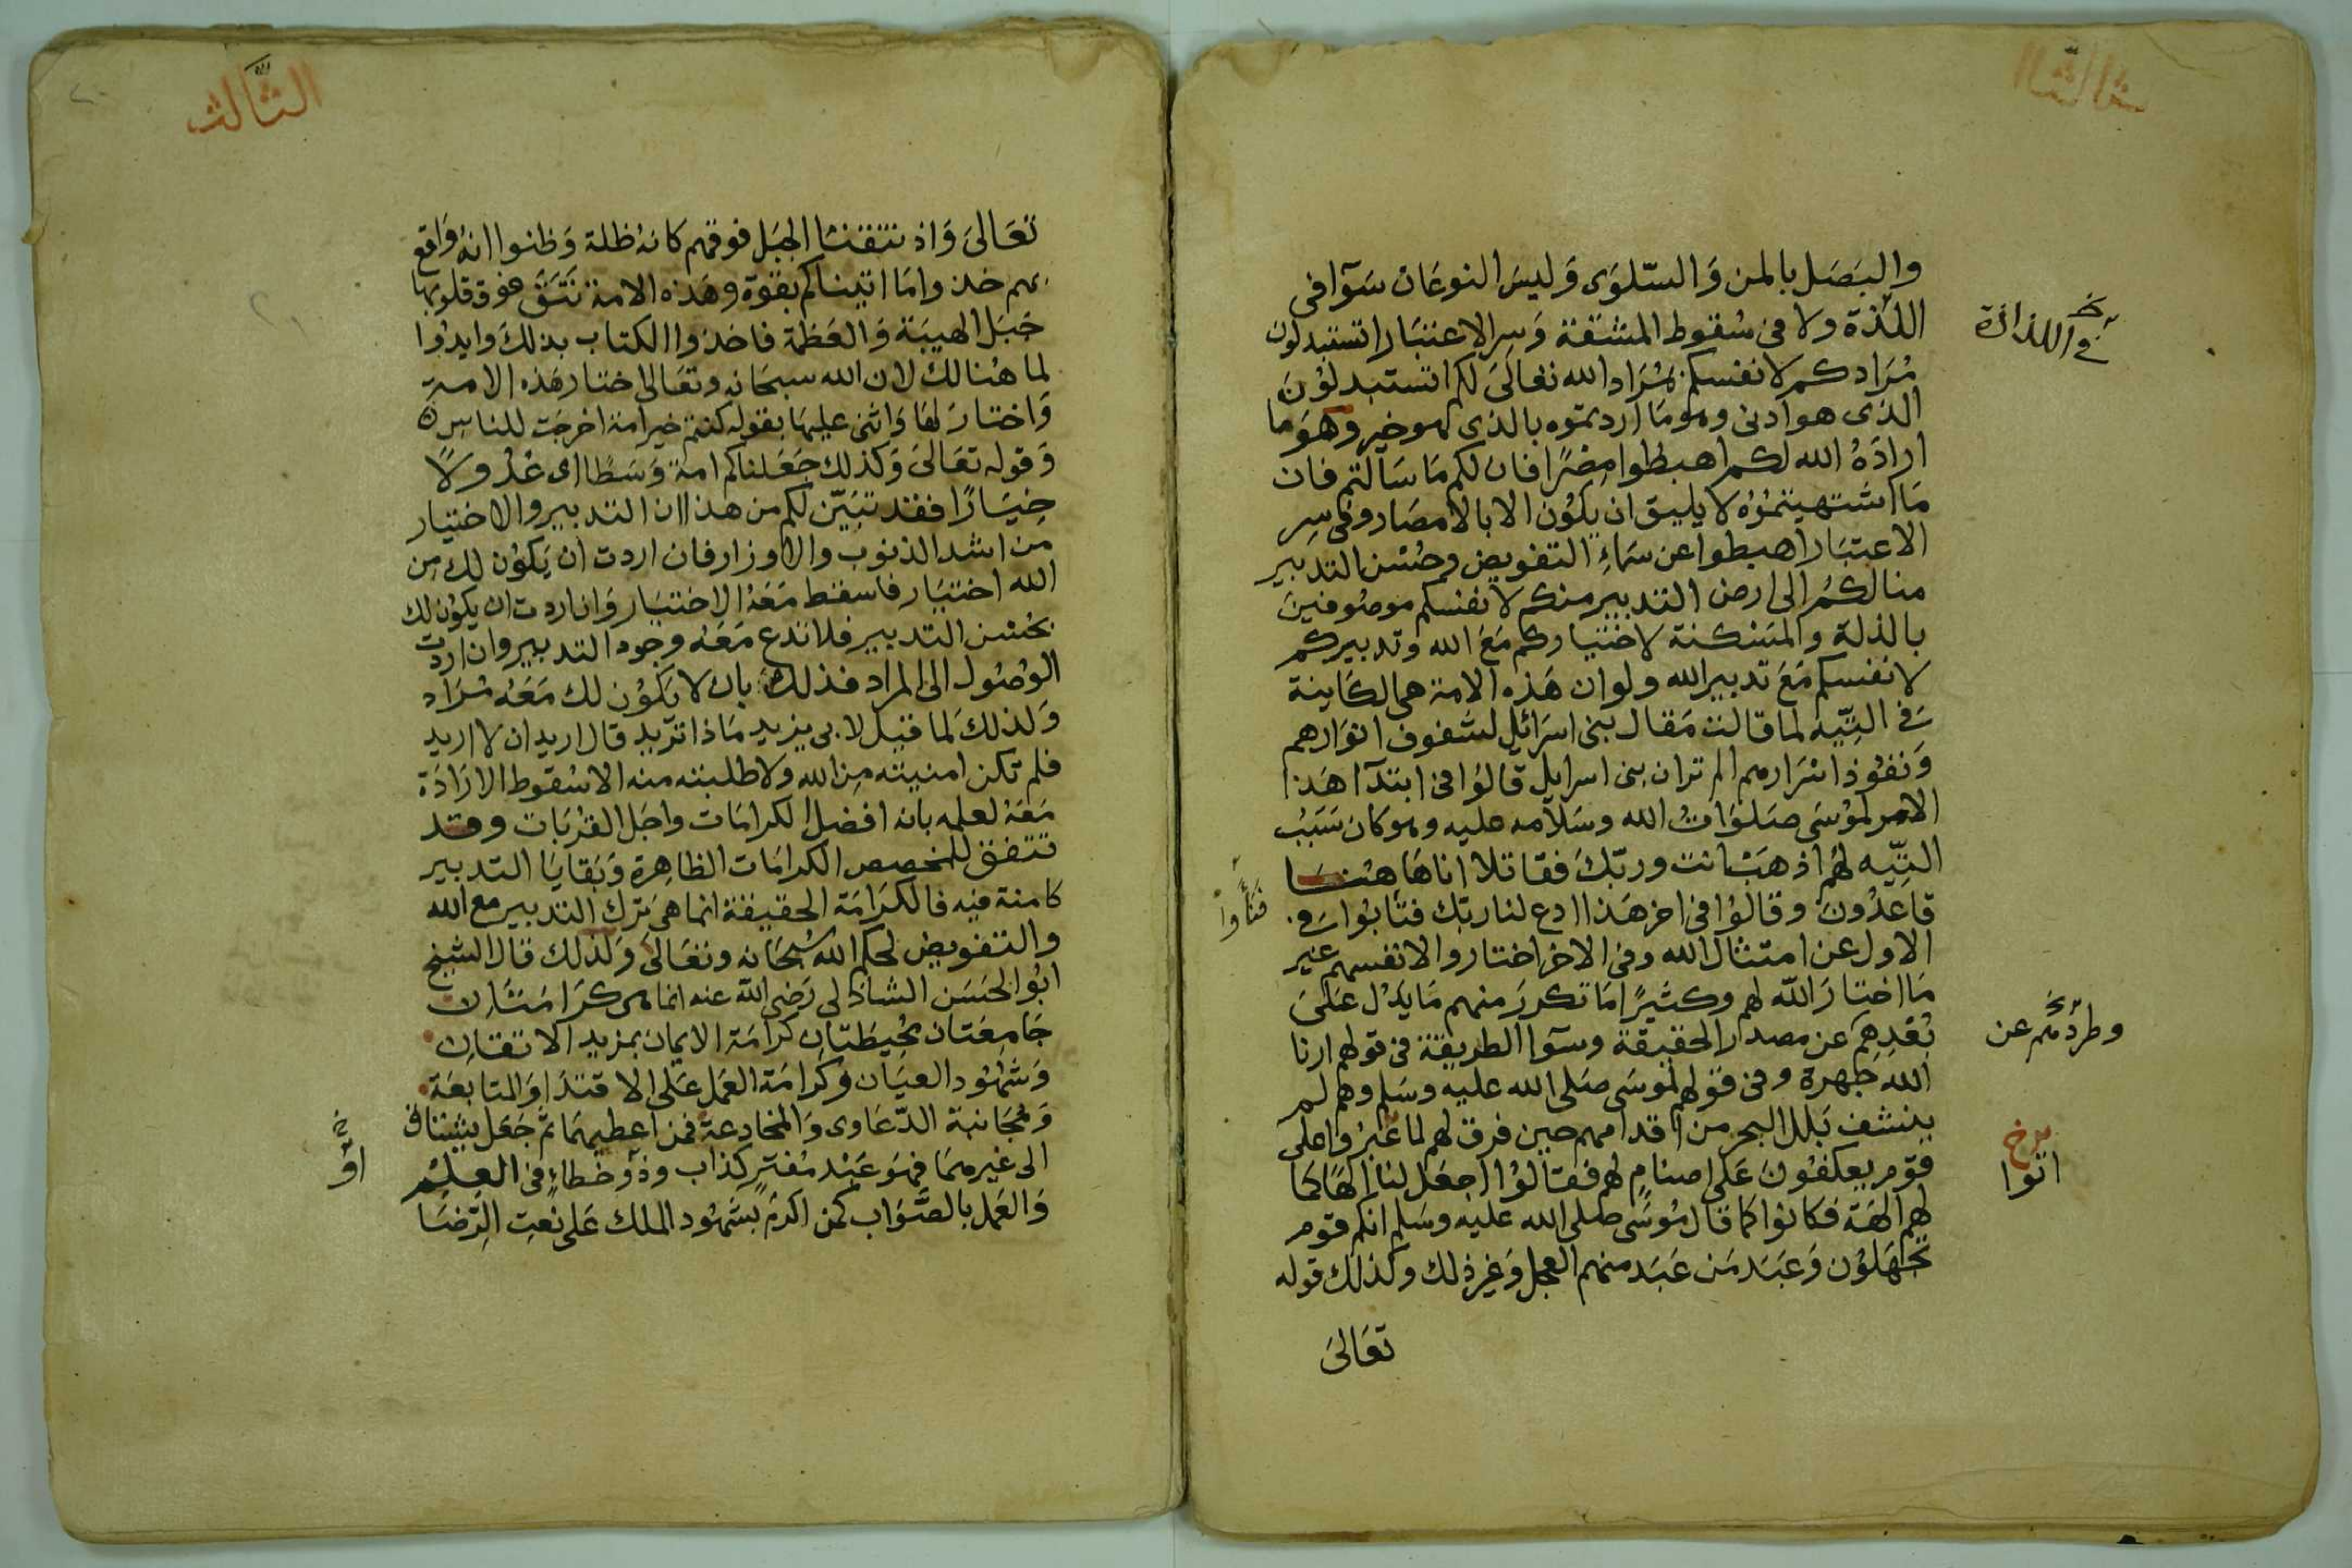 والبصل بالمن وَالسّلوَى وَليسَ النوعَان سَوآ فى
اللذة ولا فى سُقوط المشقة وَسِر الاعتبَار اتستبدلون
مُرَادكم لانفسكم بمُرَاد الله تعَالىَ لكم اتستبدلوُنَ
الذى هوادنى وهومَا اردتموه بالذى هوخير وهوَ ما
ارادَهُ الله لكم اهبطوا مِصْرًا فان لكم مَا سَآلتم فان
مَا اشتهيتموُهُ لا يليق ان يكوُن الا بالامصَار وفى سِر
الاعتبَار اهبطوا عن سَماءِ التفويض وحُسْن التدبير
منا لكمُ الى ارض التدبير منكم لانفسكم موصُوفينَ
بالذلة والمَسْكنة لاختياركم مَعَ الله وتدبيركم
لانفسكم مَعَ تدبير الله ولو ان هَذه الامة هى الكَاينة
فى التِّيه لما قالت مَقال بنى اسرَائِل لشفوف انوَارهم
وَنفوُذ اسْرَارهم الم تر ان بنى اسرايل قالوُا فى ابتدآ هَذا
الامر لموُسَى صَلوَاتُ الله وسَلاَمه عليه وهو كان سَبَبُ
التِّيه لهم اذهَبْ انت وربّكَ فقاتلا انا هَاهُنَا
قاعدُونَ وقالوُا فى اخر هَذا ادع لنا ربّك فتأبوا فى
الاول عن امتثال الله وفى الاخر اختاروا لانفسهم غير
مَا اختارَ اللّه لهم وكثيرًا مَا تكررَ منهم مَا يدُل عَلىَ
بُعْدِهِم عن مصدر الحقيقة وسوَآ الطريقة فى قولهم ارنا
الله جَهرة وفى قولهم لموسَى صَلى الله عليه وسَلم وهم لم
ينشف بَلل البحر من اقدامهم حين فرق لهم لما عَبرُوا على
قوم يعكفوُنَ عَلى اصنام لهم فقالوُا اجعَل لنا الهًا كما
لهم الهَة فكانوُا كما قال مُوسَى صَلى الله عليه وسَلم انكم قوم
تجهَلوُن وَعَبَدَ مَن عَبَد منهم العجل وَغير ذلك وكذلك قوله
تعَالىَ
واللذاذة
فنَأَوْا
وطردهم عن
اتوا
الثَّالث
تعَالىَ وَاذ نتقنا الجبَل فوقهم كانه ظلة وَظنوا انهُ وَاقع
بهم خذوا مَا اتيناكم بقوّة وهَذه الامة نُتَقَ فوق قلوبها
جَبَل الهيبَة وَالعَظمة فاخذوا الكتاب بذلكَ وايدوُا
لما هُنالك لان الله سبحَانه وتعَالى اختار هَذه الامة
وَاختارَ لهَا وَاثنى عليهَا بقوله كنتم خير امة اخرجَت للناسِ
وَقوله تعَالىَ وَكذلك جَعَلناكم امة وَسَطًا اى عُدُولاً
خِيَارًا فقد تبَيّن لكم من هذا ان التدبير والاختيار
من اشد الذنوب والاوزار فان اردت ان يَكوُن لك مِن
الله اختيَار فاسقط مَعَهُ الاختيَار وَان اردت ان يكوُن لك
بحُسْن التدبير فلا تدع مَعَهُ وجود التدبير وان اردت
الوُصُول الى المراد فذلك بان لا يَكوُن لك مَعَهُ مُرَاد
وَلذلكَ لما قيل لابى يزيد مَاذا تريد قال اريد ان لا اريد
فلم تكن امنيته مِنَ الله ولا طلبته منه الا سُقوط الارَادَة
مَعَهُ لعلمه بانه افضل الكرامَات واجَل القرُبَات وقد
تتفق للمخصص الكرامَات الظاهِرة وَبَقايَا التدبير
كامنة فيه فالكَرَامَة الحقيقة انما هىَ تركُ التدبير مع الله
والتفويض لحكم الله سُبحَانه وتعَالىَ وَلذلك قال الشيخ
ابوُ الحَسَن الشاذلى رَضى اللّه عنه انما هى كرَامَتان
جَامِعَتان مُحِيطَتان كرامَة الايمان بمزيد الاتقان
وَشهُود العيَان وَكرامَة العمَل عَلى الاقتدَا وَالمتابعَة
وَمُجَانبة الدّعَاوى وَالمخادعة فمن اعطيهمَا ثم جَعَل يشتاق
الى غيرهمَا فهوَ عَبْد مُفترٍ كذاب وذو خَطاءٍ فى العِلم
وَالعَمل بالصَّوَاب كمن اكرم بشهُود الملك عَلى نعتِ الرِّضَا
اوْ